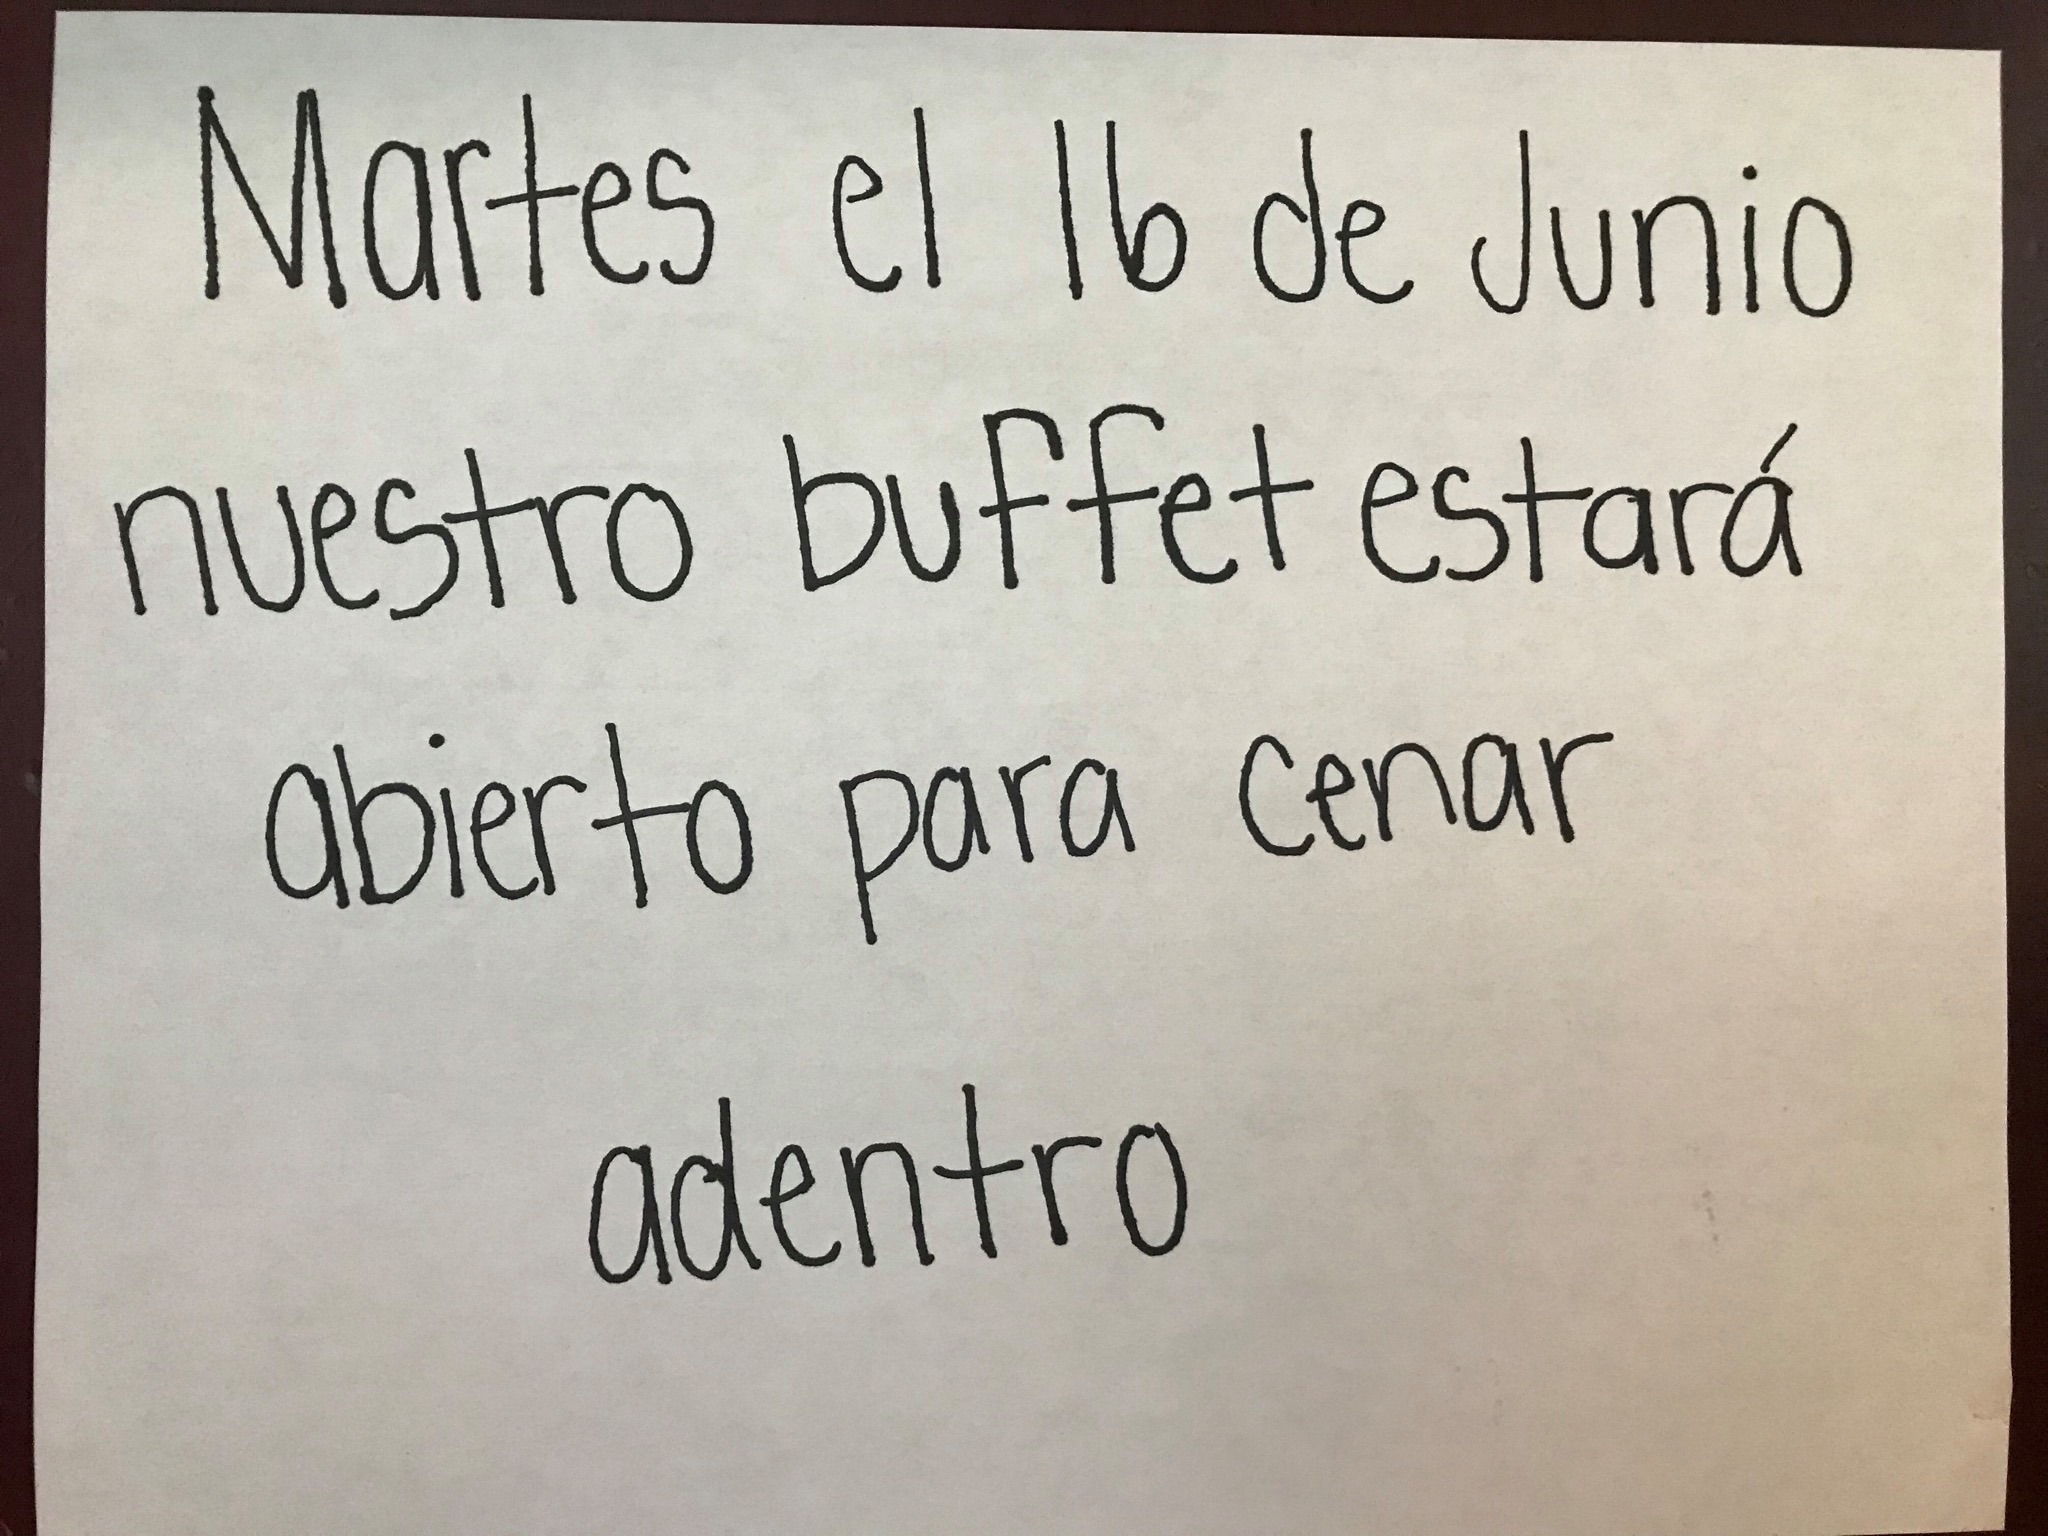 Martes el 16 de Junio
nuestro buffet estará
abierto para cenar
adentro